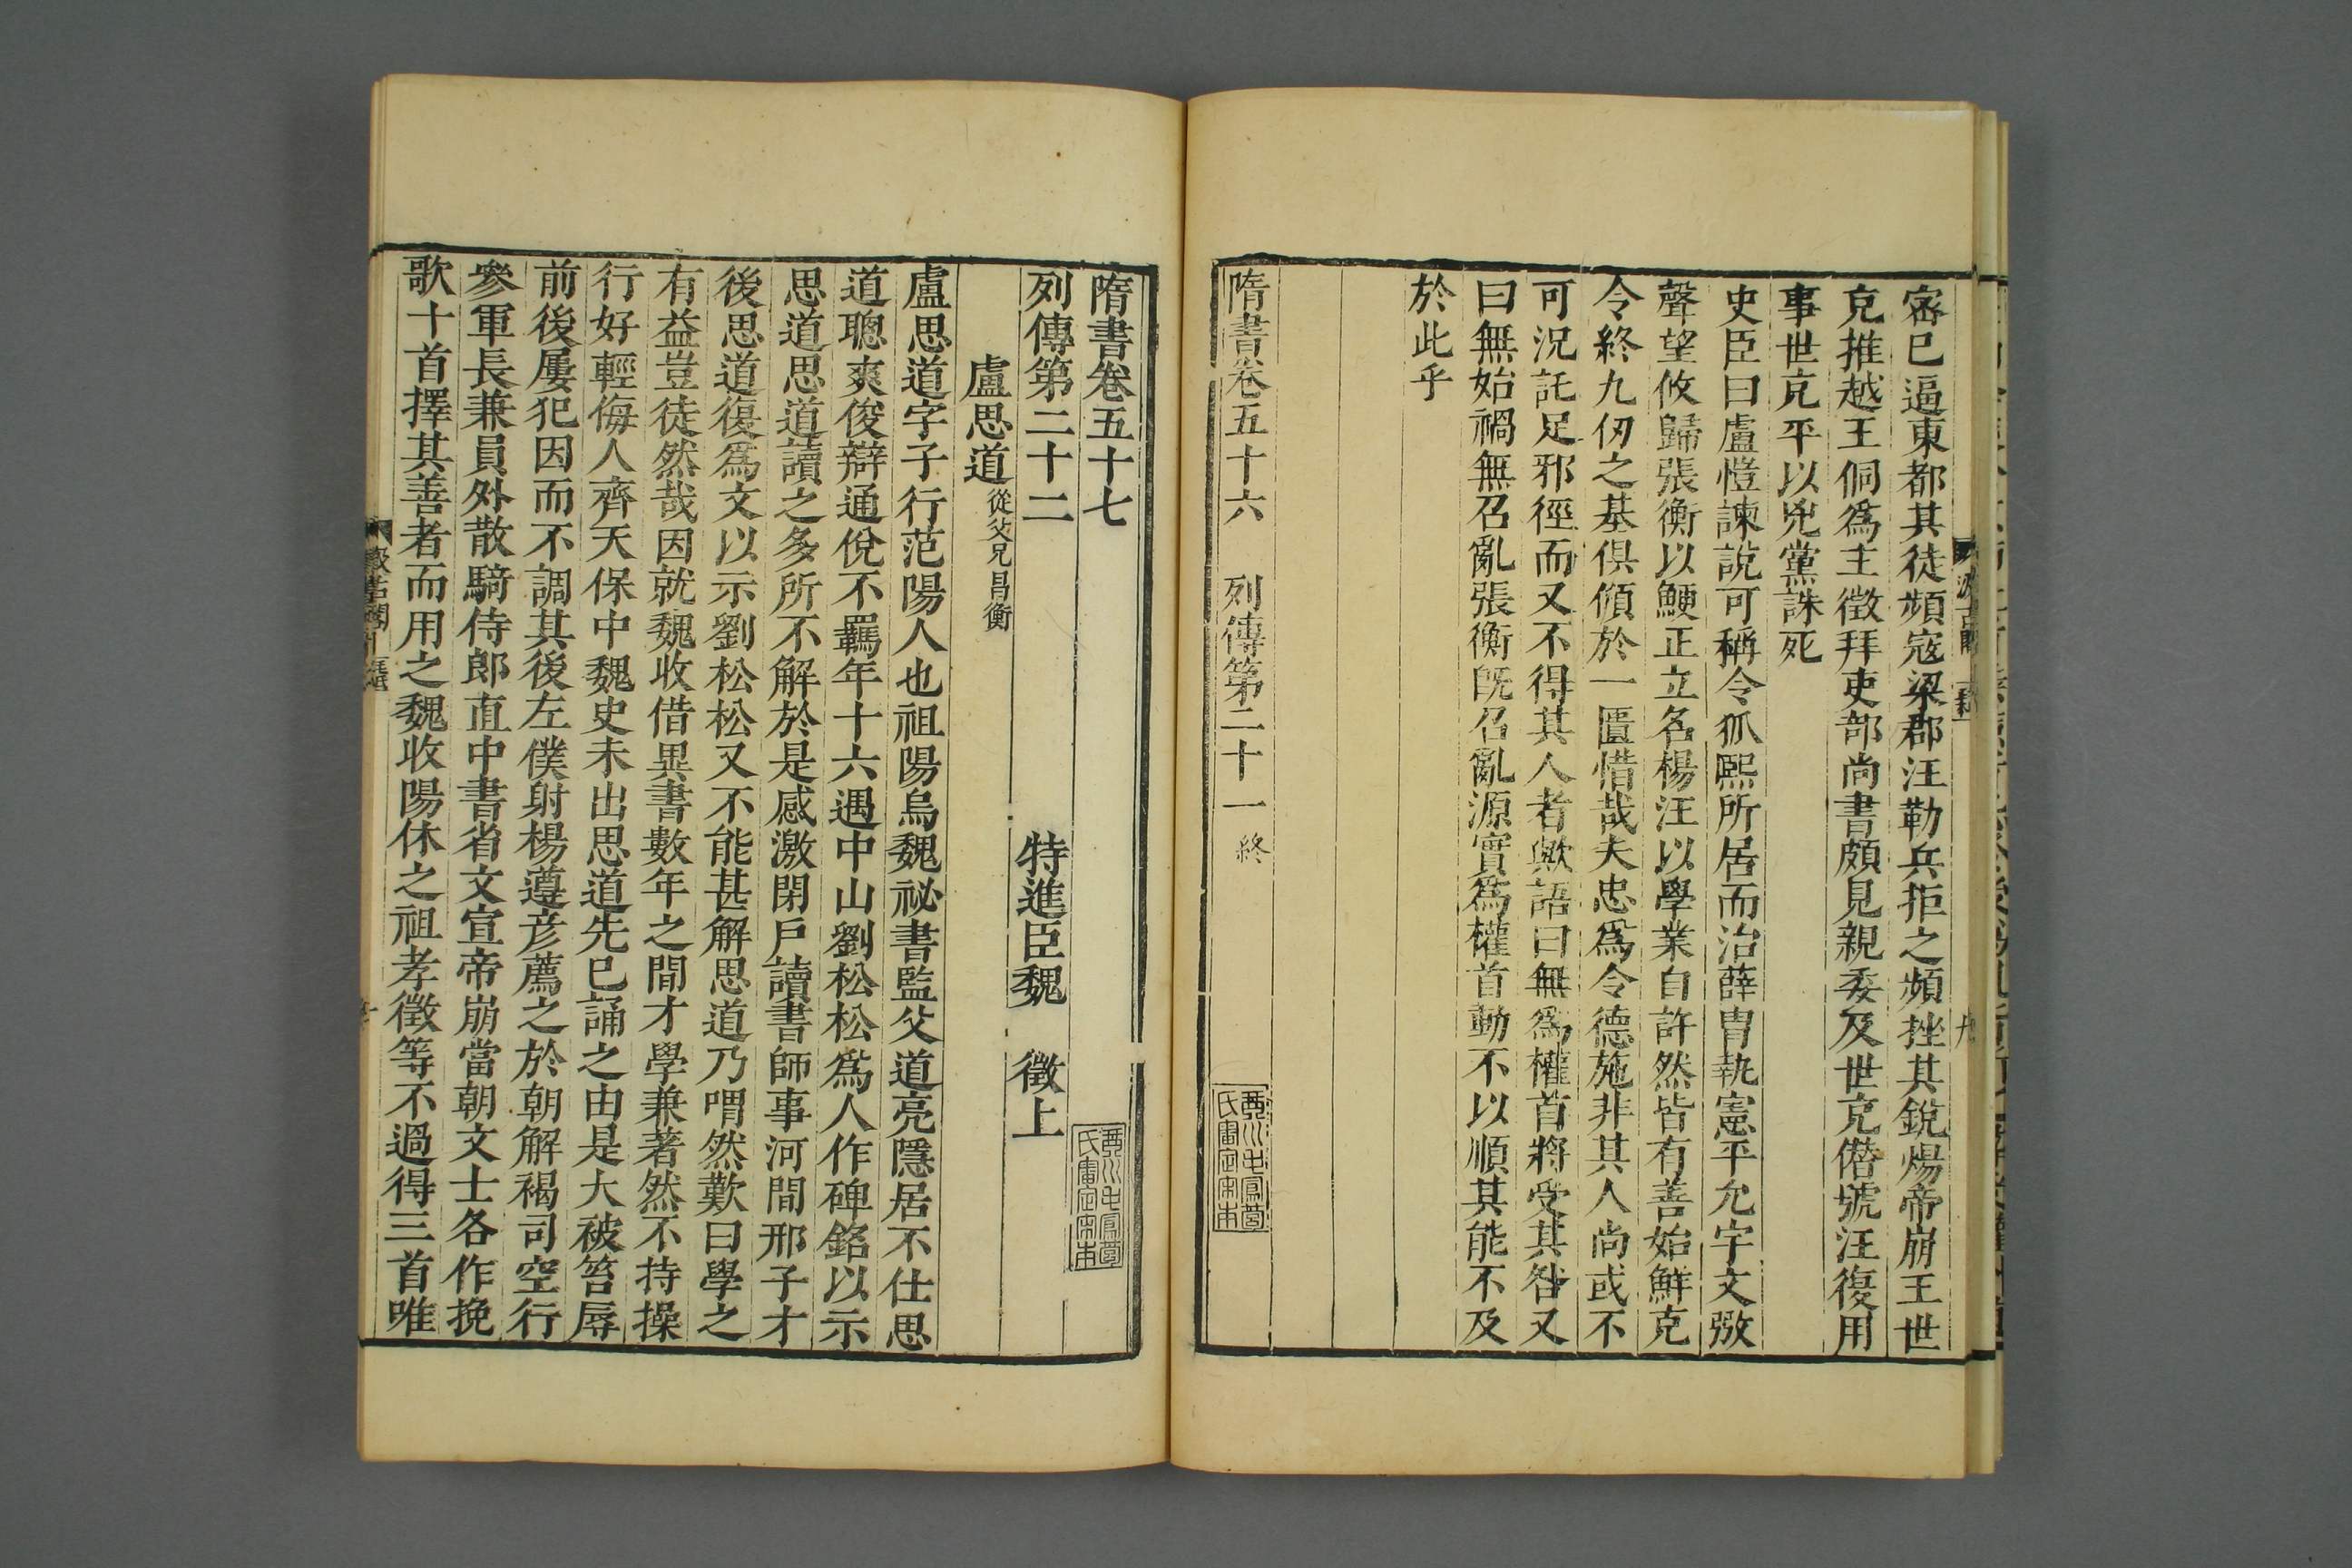 密巳逼東都其徒頻寇梁郡汪勒兵拒之頻挫其銳煬帝崩王世
充推越王侗爲主徵拜吏部尚書頗見親委及世充僭號汪復用
事世充平以兇黨誅死
史臣曰盧愷諫說可稱令狐熙所居而治薛胄執憲平允宇文㢸
聲望攸歸張衡以鯁正立名楊汪以學業自許然皆有善始鮮克
令終九仞之基俱傾於一匱惜哉夫忠爲令德施非其人尚或不
可況託足邪徑而又不得其人者歟語曰無爲權首將受其咎又
曰無始禍無召亂張衡旣召亂源實爲權首動不以順其能不及
於此乎
隋書卷五十六 列傳第二十一 終
隋書卷五十七
列傳第二十二 特進臣魏 徵上
盧思道 從父兄昌衡
盧思道字子行范陽人也祖陽烏魏祕書監父道亮隱居不仕思
道聰爽俊辯通侻不羈年十六遇中山劉松松爲人作碑銘以示
思道思道讀之多所不解於是感激閉戶讀書師事河間邢子才
後思道復爲文以示劉松松又不能甚解思道乃喟然歎曰學之
有益豈徒然哉因就魏收借異書數年之間才學兼著然不持操
行好輕侮人齊天保中魏史未出思道先巳誦之由是大被笞辱
前後屢犯因而不調其後左僕射楊遵彥薦之於朝解褐司空行
參軍長兼員外散騎侍郎直中書省文宣帝崩當朝文士各作挽
歌十首擇其善者而用之魏收陽休之祖孝徵等不過得三首唯